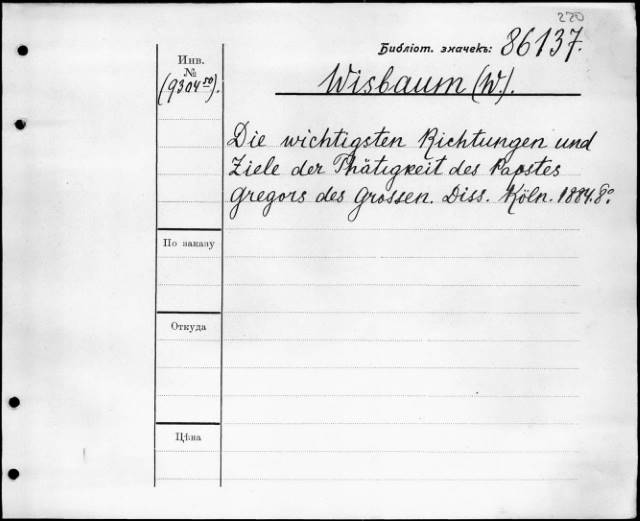 220
Библіот. значекъ: 86137.
Инв.
№
(9304⁵⁰).
Wisbaum (W.).
Die wichtigsten Richtungen und
Ziele der Thätigkeit des Papstes
Gregors des Grossen. Diss. Köln. 1884. 8º.
По заказу
Откуда
Цѣна